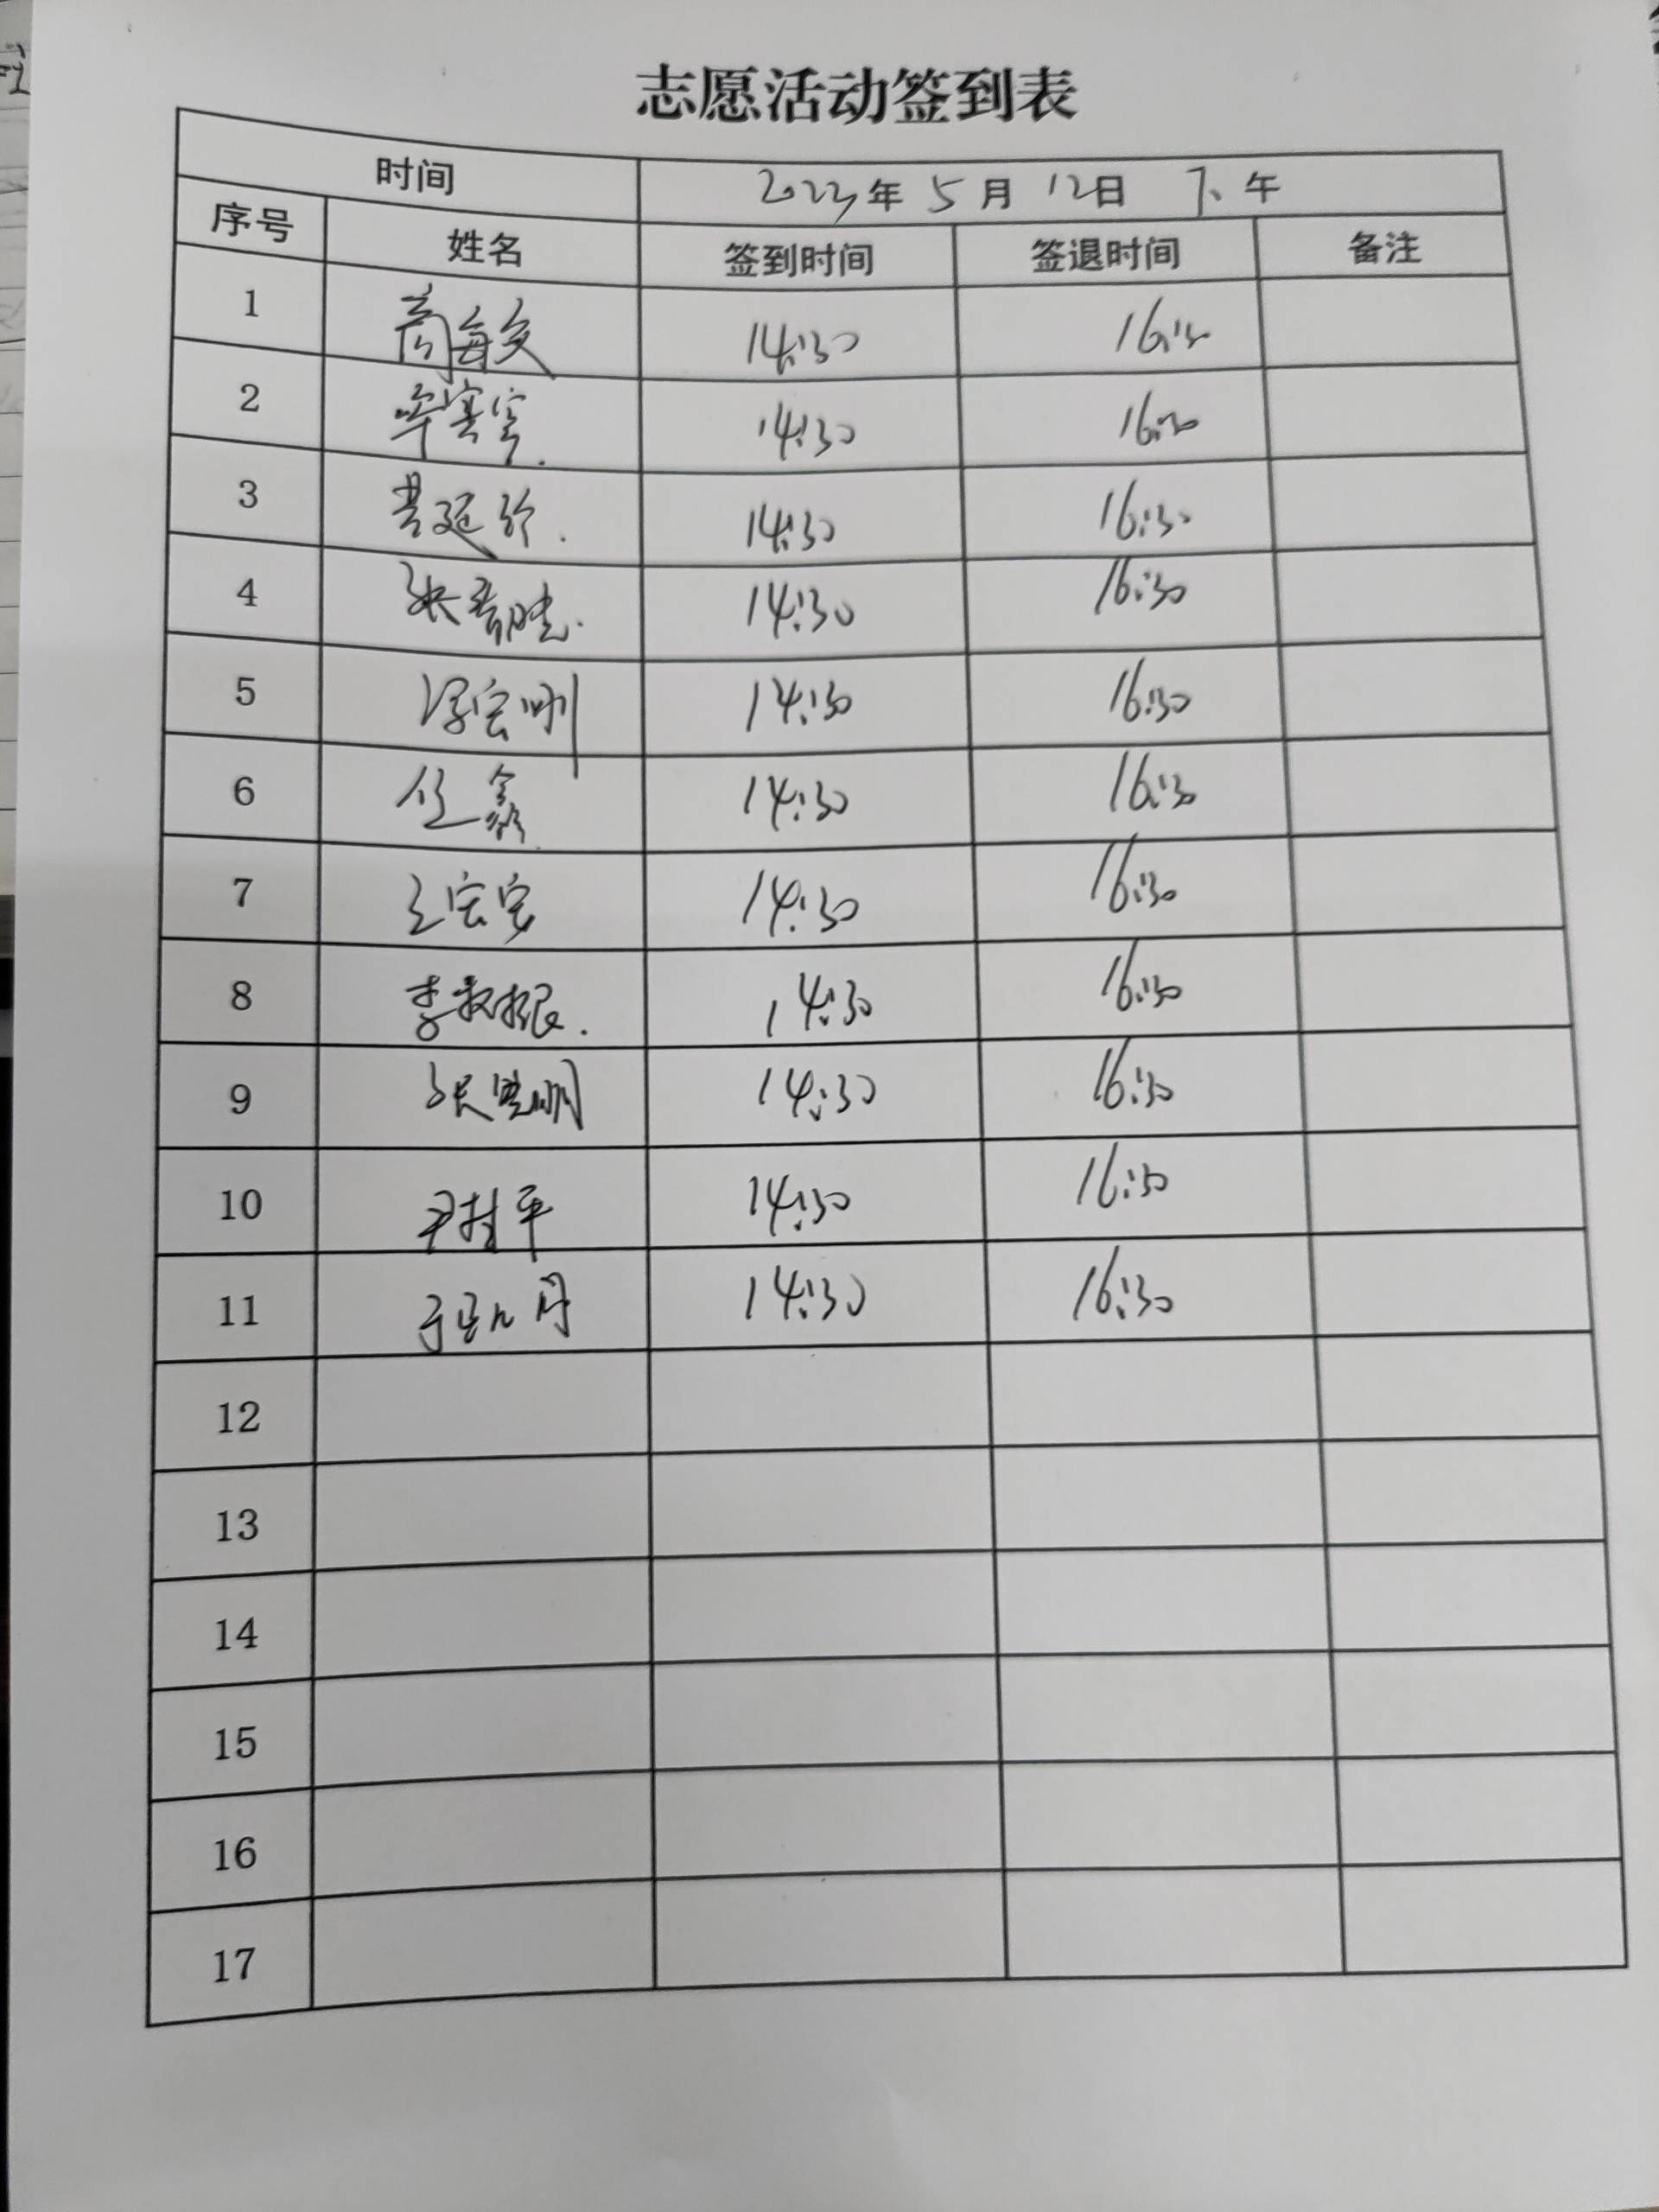 志愿活动签到表
时间 2023年 5月 12日 下午
序号 姓名 签到时间 签退时间 备注
1 14:30 16:30
2 14:30 16:30
3 14:30 16:30
4 14:30 16:30
5 14:30 16:30
6 任鑫 14:30 16:30
7 王宏宝 14:30 16:30
8 14:30 16:30
9 14:30 16:30
10 尹树平 14:30 16:30
11 14:30 16:30
12
13
14
15
16
17